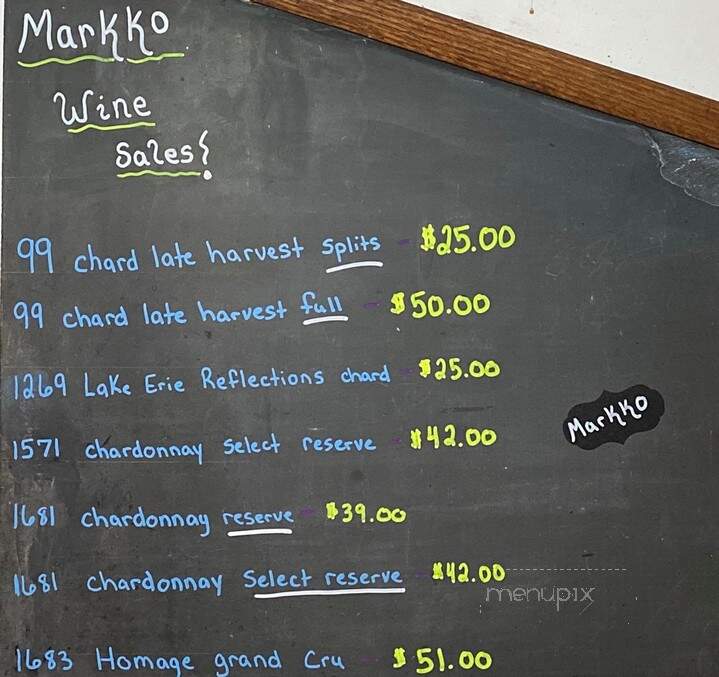 Markko
Wine
Sales!
99 chard late harvest splits - $25.00
99 chard late harvest full - $50.00
1269 Lake Erie Reflections chard - $25.00
Markko
1571 chardonnay select reserve - $42.00
1681 chardonnay reserve - $39.00
1681 chardonnay select reserve $42.00
menupix
1683 Homage grand Cru - $51.00